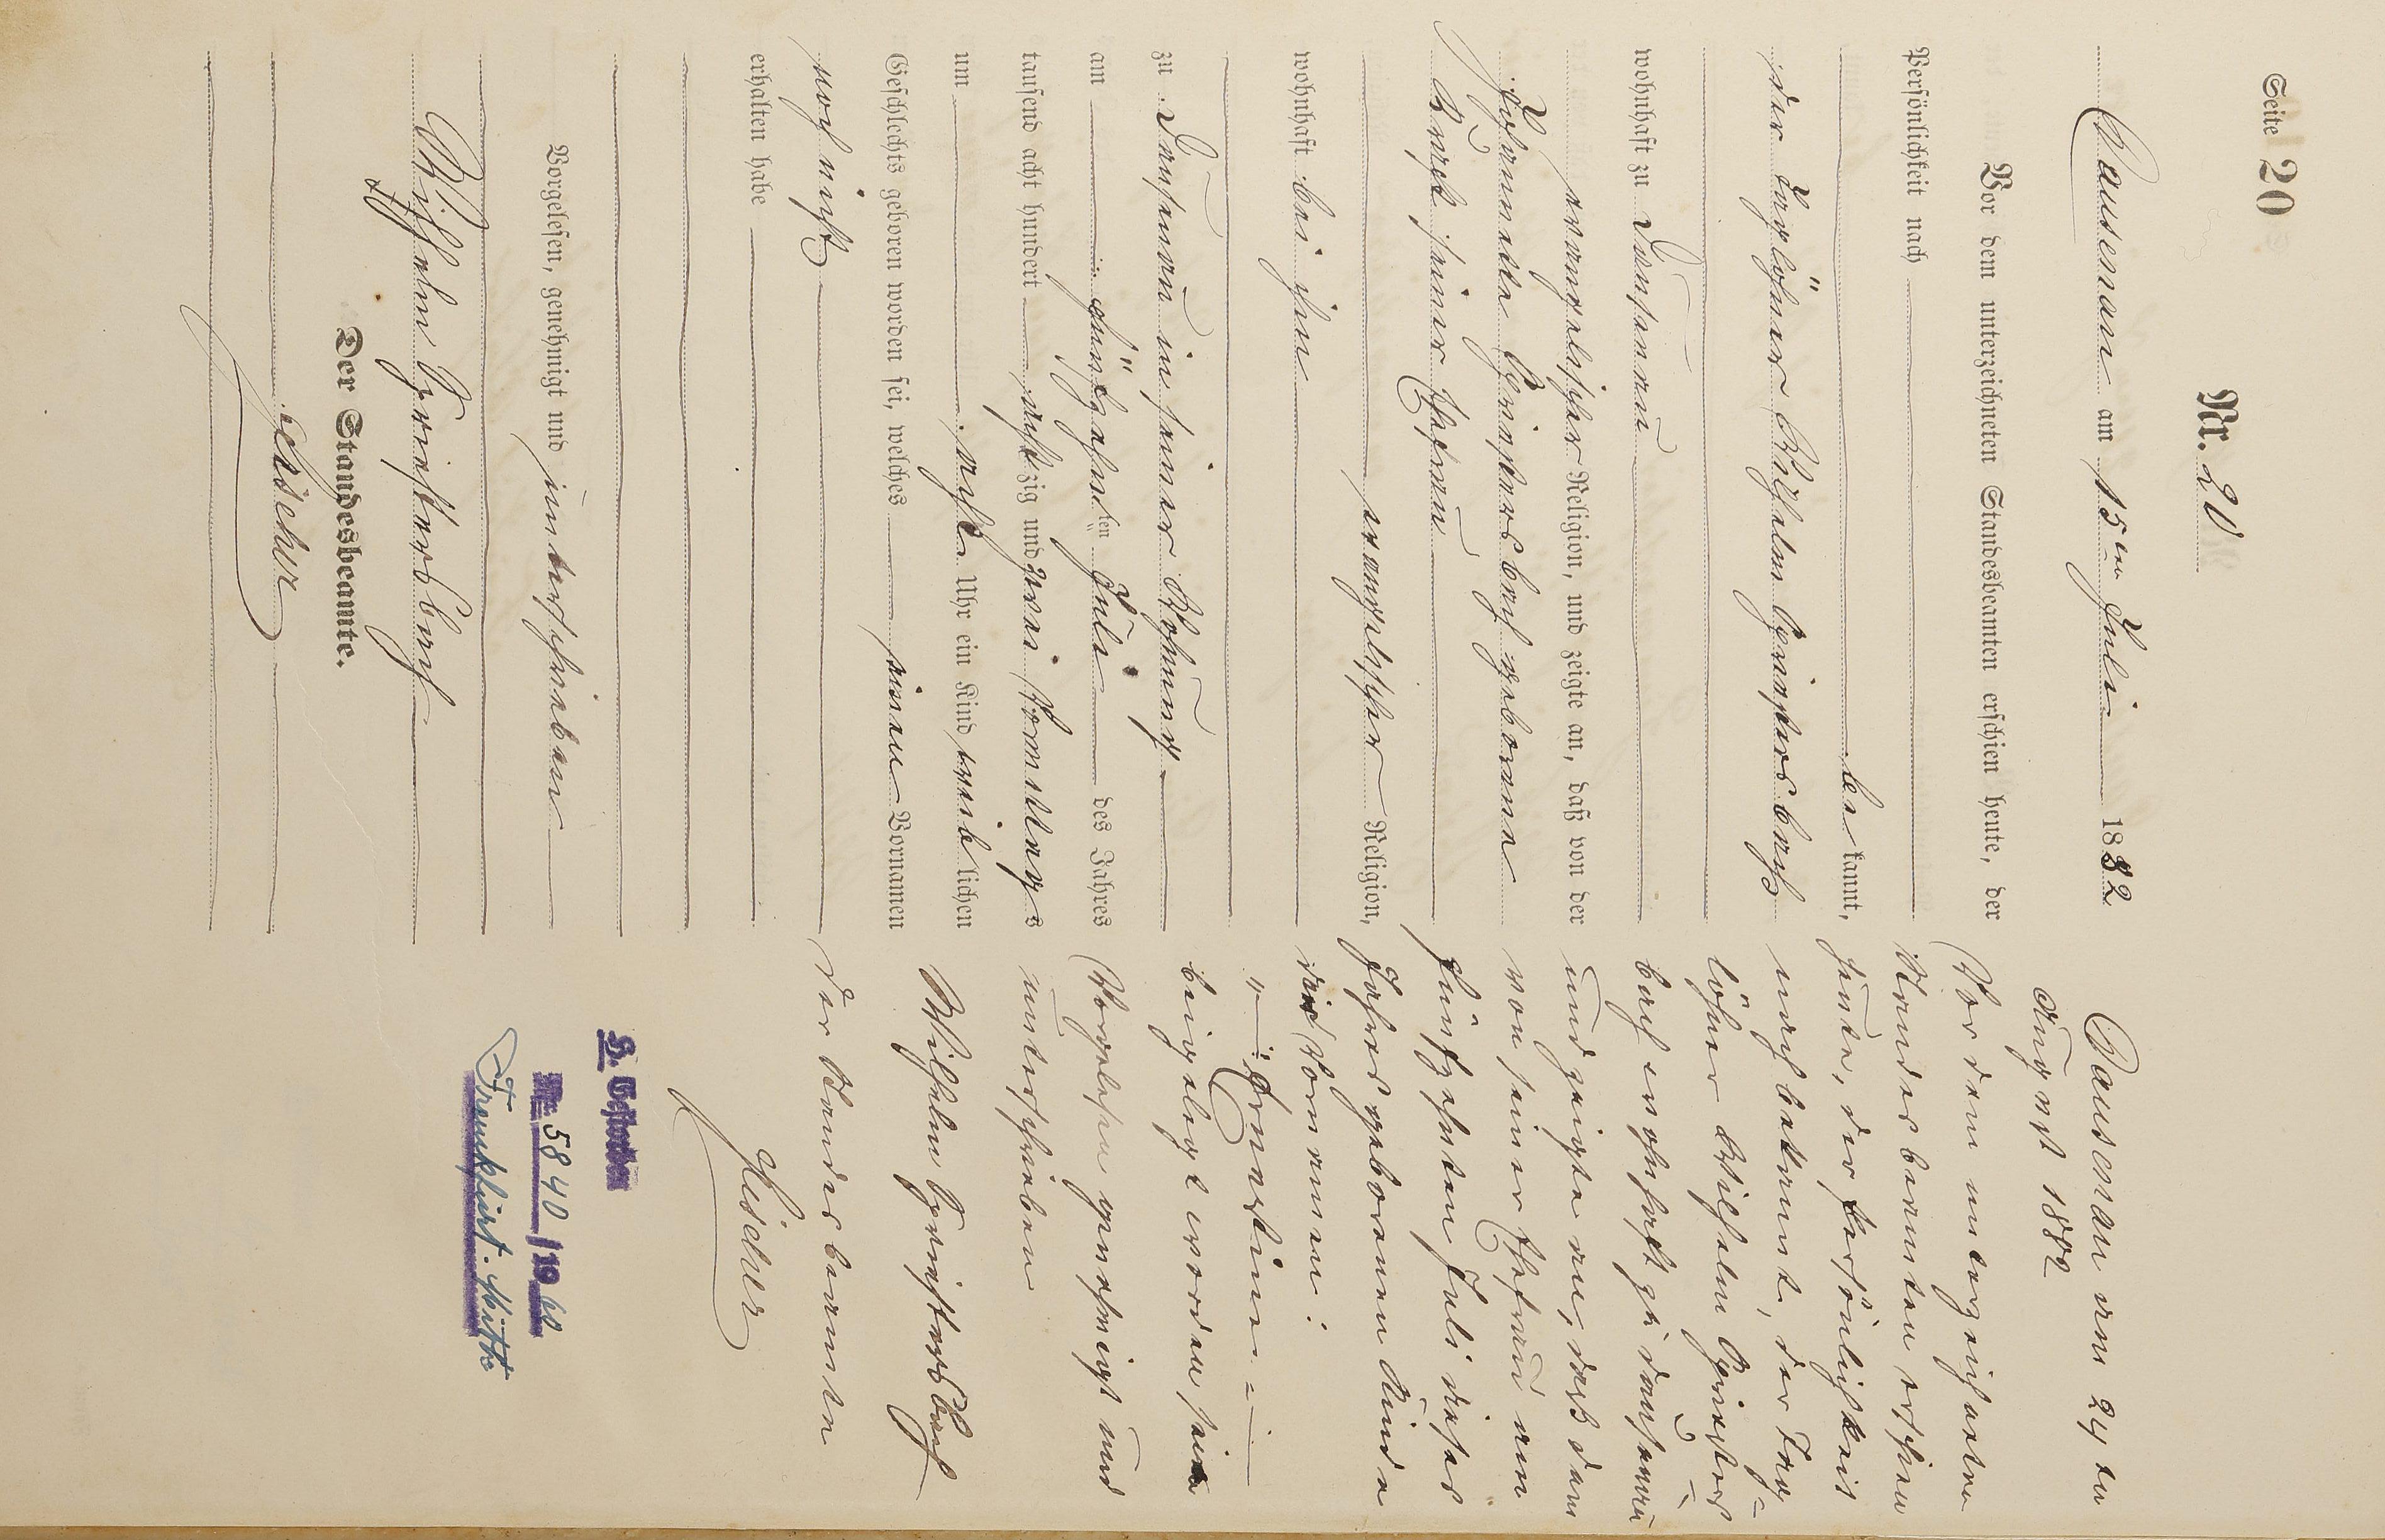 Seite 20
Nr. 20
Dausenau am 15ten Juli 1882
Vor dem unterzeichneten Standesbeamten erschien heute, der
Persönlichkeit nach
be kannt,
der Taglöhner Wilhelm Geistersbach
wohnhaft zu Dausenau
evangelischer Religion, und zeigte an, daß von der
Geistersbach geborene
seiner Ehefrau
evangelischer Religion,
wohnhaft bei ihm
zu Dausenau in seiner Wohnung
am fünfzehnten Juli des Jahres
tausend acht hundert achtzig und zwei Vormittags
um acht Uhr ein Kind weiblichen
Geschlechts geboren worden sei, welches einen Vornamen
noch nicht
erhalten habe
Vorgelesen, genehmigt und unterschrieben
Wilhelm Geistersbach
Der Standesbeamte.
Fischer
Dausenau am 24ten
August 1882
Vor dem unterzeichneten
Standesbeamten erschien
heute, der Persönlichkeit
nach bekannt, der Tag-
löhner Wilhelm Geisters
bach wohnhaft zu Dausenau
und zeigte an, dass dem
von seiner Ehefrau am
fünfzehnten Juli dieses
Jahres geborenen Kinde
die Vornamen:
Ernestine
beigelegt worden seien
Vorgelesen genehmigt und
unterschrieben
Wilhelm Geistersbach
Der Standesbeamte
Fischer
Gestorben
Nr. 5840/19
Frankfurt. Mitte